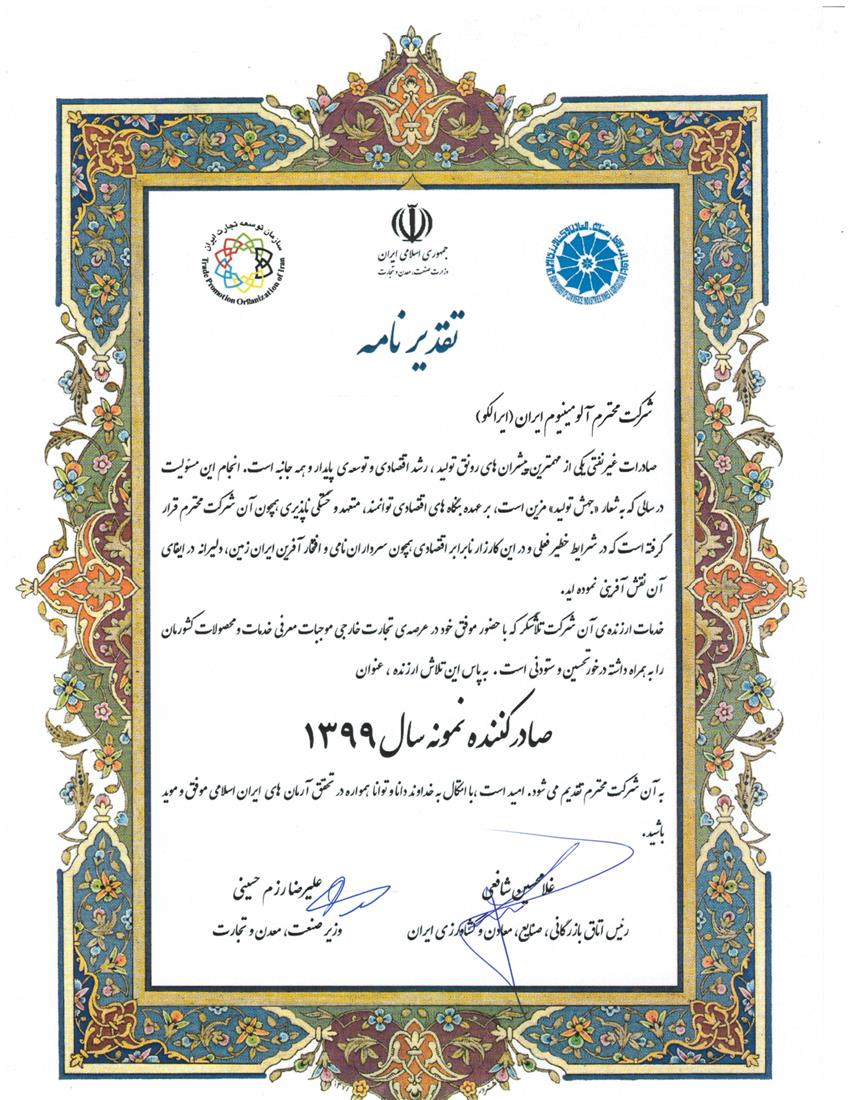 سازمان توسعه تجارت ایران
Trade Promotion Organization of Iran
جمهوری اسلامی ایران
وزارت صنعت، معدن و تجارت
تقدیر نامه
شرکت محترم آلومینیوم ایران (ایرالکو)
صادرات غیرنفتی یکی از مهمترین پیشران های رونق تولید ، رشد اقتصادی و توسعه ی پایدار و همه جانبه است. انجام این مسئولیت
در سالی که به شعار «جهش تولید» مزین است، بر عهده بنگاه های اقتصادی توانمند، متعهد و خستگی ناپذیری همچون آن شرکت محترم قرار
گرفته است که در شرایط خطیر فعلی و در این کارزار نابرابر اقتصادی همچون سرداران نامی و افتخار آفرین ایران زمین، دلیرانه در ایفای
آن نقش آفرینی نموده اید.
خدمات ارزنده ی آن شرکت تلاشگر که با حضور موفق خود در عرصه ی تجارت خارجی موجبات معرفی خدمات و محصولات کشورمان
را به همراه داشته در خور تحسین و ستودنی است . به پاس این تلاش ارزنده ، عنوان
صادر کننده نمونه سال ۱۳۹۹
به آن شرکت محترم تقدیم می شود. امید است ،با اتکال به خداوند دانا و توانا همواره در تحقق آرمان های ایران اسلامی موفق و موید
باشید.
غلامحسین شافعی
رئیس اتاق بازرگانی، صنایع، معادن و کشاورزی ایران
علیرضا رزم حسینی
وزیر صنعت، معدن و تجارت